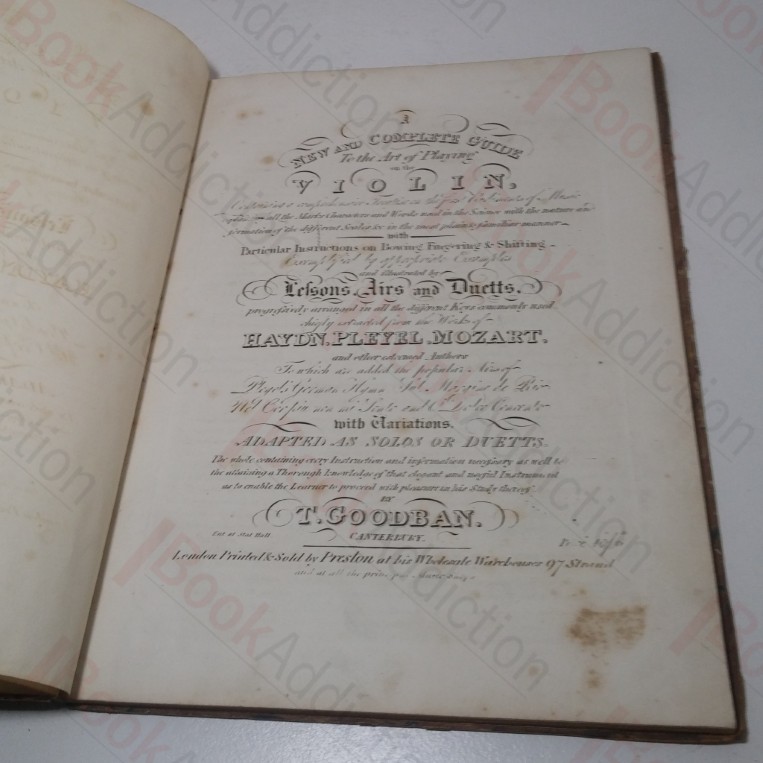 A
NEW AND COMPLETE GUIDE
To the Art of Playing
on the
VIOLIN,
all the Marks Characters and Words used in the Science with the nature and
formation of the different Scales &c in the most plain & familiar manner
with
Particular Instructions on Bowing Fingering & Shifting
Exemplified by appropriate Examples
and illustrated by
Lessons, Airs and Duetts,
progressively arranged in all the different Keys commonly used
chiefly extracted from the Works of
HAYDN, PLEYEL, MOZART,
and other esteemed Authors
To which are added the popular Airs of
Pleyel's German Hymn
with Variations,
ADAPTED AS SOLOS OR DUETTS.
The whole containing every Instruction and information necessary as well to
the attaining a Thorough knowledge of that elegant and useful Instrument
as to enable the Learner to proceed with pleasure in his Study thereof
BY
T. GOODBAN.
CANTERBURY.
Ent at Stat Hall
London Printed & Sold by Preston at his Wholesale Warehouses 97 Strand
and at all the principal Music
Book Addiction